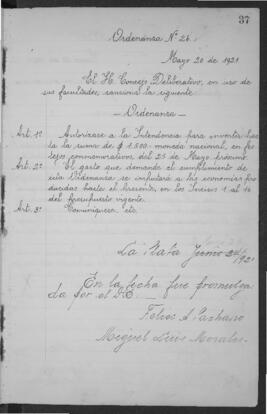 37
Ordenanza Nº 26.
Mayo 20 de 1921
El H. Concejo Deliberativo, en uso de
sus facultades, sanciona la siguiente
— Ordenanza —
Art. 1º Autorízase a la Intendencia para invertir has
ta la suma de $ 1.500. moneda nacional, en fes
tejos conmemorativos del 25 de Mayo próximo.
Art. 2º El gasto que demande el cumplimiento de
esta Ordenanza se imputará a las economías pro
ducidas hasta el presente, en los Incisos 1 al 16
del presupuesto vigente.
Art. 3º Comuníquese, etc.
La Plata Junio 1921
En la fecha fué promulga
da por el D.E.
Miguel Luis Morales